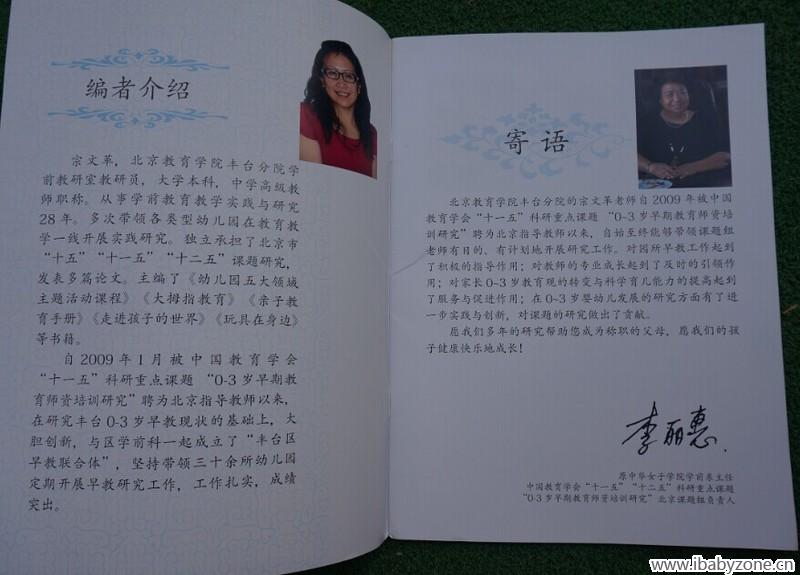 编者介绍
宗文革，北京教育学院丰台分院学
前教研室教研员，大学本科，中学高级教
师职称。从事学前教育教学实践与研究
28年。多次带领各类型幼儿园在教育教
学一线开展实践研究。独立承担了北京市
“十五”“十一五”“十二五”课题研究，
发表多篇论文。主编了《幼儿园五大领域
主题活动课程》《大拇指教育》《亲子教
育手册》《走进孩子的世界》《玩具在身边》
等书籍。
自2009年1月被中国教育学会
“十一五”科研重点课题 “0-3岁早期教
育师资培训研究”聘为北京指导教师以来，
在研究丰台0-3岁早教现状的基础上，大
胆创新，与区学前科一起成立了“丰台区
早教联合体”，坚持带领三十余所幼儿园
定期开展早教研究工作，工作扎实，成绩
突出。
寄语
北京教育学院丰台分院的宗文革老师自2009年被中国
教育学会“十一五”科研重点课题“0-3岁早期教育师资培
训研究”聘为北京指导教师以来，自始至终能够带领课题组
老师有目的、有计划地开展研究工作。对因所早教工作起到
了积极的指导作用；对教师的专业成长起到了及时的引领作
用；对家长0-3岁教育观的转变与科学育儿能力的提高起到
了服务与促进作用；在0~3岁婴幼儿发展的研究方面有了进
一步实践与创新，对课题的研究做出了贡献。
愿我们多年的研究帮助您成为称职的父母，愿我们的孩
子健康快乐地成长！
李丽惠
原中华女子学院学前系主任
中国教育学会“十一五”“十二五”科研重点课题
“0-3岁早期教育师资培训研究”北京课题组负责人
www.ibabyzone.cn